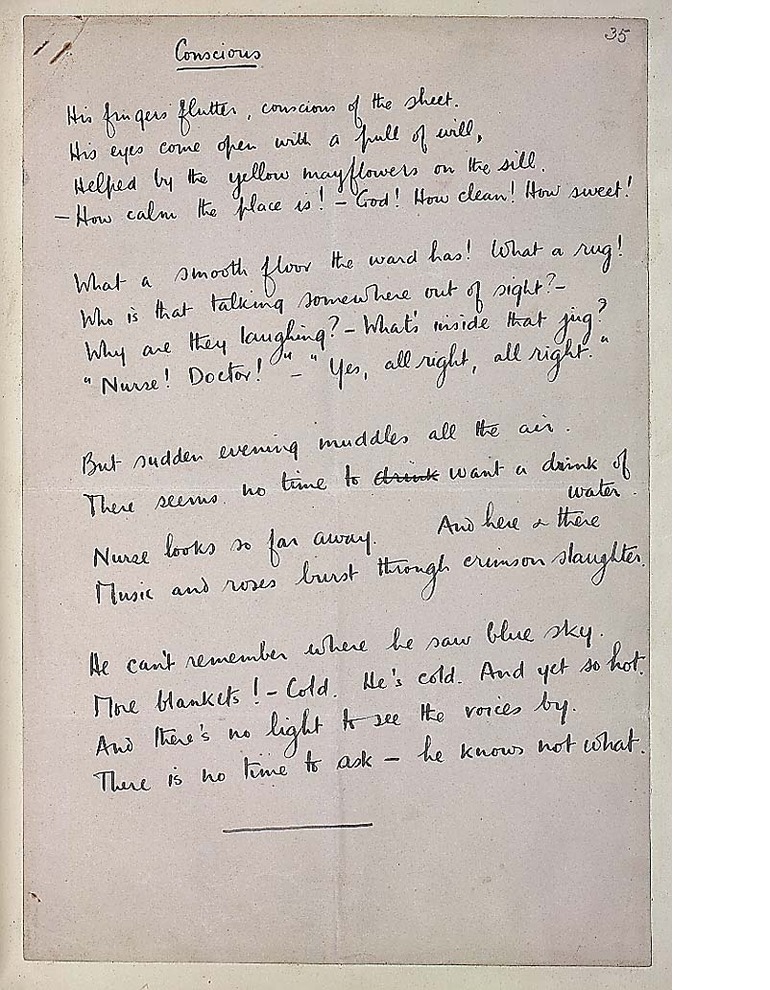 35
Conscious
His fingers flutter, conscious of the sheet.
His eyes come open with a pull of will,
Helped by the yellow mayflowers on the sill.
– How calm the place is! – God! How clean! How sweet!
What a smooth floor the ward has! What a rug!
Who is that talking somewhere out of sight? –
Why are they laughing? – What's inside that jug?
"Nurse! Doctor!" – "Yes, all right, all right."
But sudden evening muddles all the air.
There seems no time to drink want a drink of
water.
Nurse looks so far away. And here & there
Music and roses burst through crimson slaughter.
He can't remember where he saw blue sky.
More blankets! – Cold. He's cold. And yet so hot.
And there's no light to see the voices by.
There is no time to ask – he knows not what.